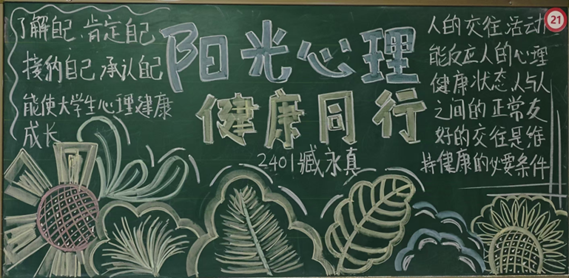 了解自己、肯定自己
接纳自己、承认自己
能使大学生心理健康
成长
阳光心理
健康同行
2401臧永真
人的交往活动
能反应人的心理
健康状态,人与人
之间的正常友
好的交往是维
持健康的必要条件
21